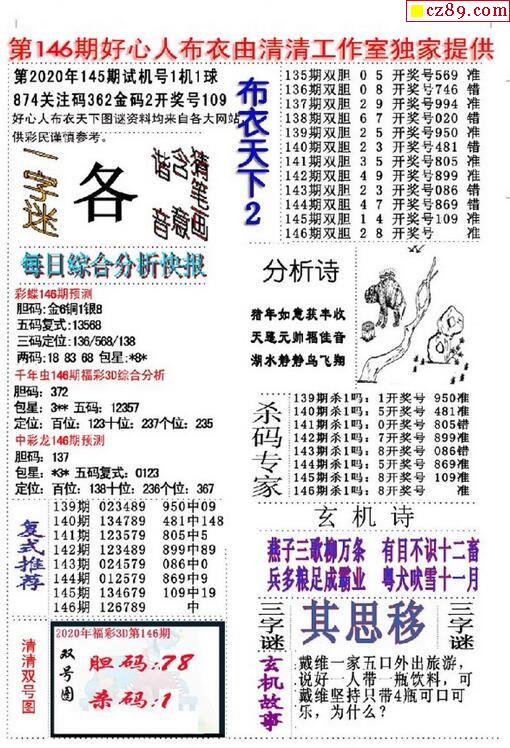 cz89.com
第146期好心人布衣由清清工作室独家提供
第2020年145期试机号1机1球
874关注码362金码2开奖号109
好心人布衣天下图谜资料均来自各大网站,
供彩民谨慎参考。
一字迷
各
猜笔画
含意
谐音
布衣天下2
135期双胆 0 5 开奖号569 准
136期双胆 0 8 开奖号746 错
137期双胆 2 9 开奖号994 准
138期双胆 6 7 开奖号020 错
139期双胆 2 5 开奖号950 准
140期双胆 2 3 开奖号481 错
141期双胆 3 5 开奖号805 准
142期双胆 4 9 开奖号899 准
143期双胆 2 3 开奖号086 错
144期双胆 4 7 开奖号869 错
145期双胆 1 4 开奖号109 准
146期双胆 2 8 开奖号
每日综合分析快报
彩蝶146期预测
胆码:金6铜1银8
五码复式:13568
三码定位:136/568/138
两码:18 83 68 包星:*8*
千年虫146期福彩3D综合分析
胆码:372
包星:3** 五码:12357
定位:百位:123十位:237个位:235
中彩龙146期预测
胆码:137
包星:*3* 五码复式:0123
定位:百位:138十位:236个位:367
分析诗
猪年如意获丰收
天蓬元帅福佳音
湖水静静鸟飞翔
杀码专家
139期杀1吗:1开奖号 950准
140期杀1吗:5开奖号 481准
141期杀1吗:0开奖号 805错
142期杀1吗:7开奖号 899准
143期杀1吗:8开奖号 086错
144期杀1吗:5开奖号 869准
145期杀1吗:8开奖号 109准
146期杀1吗:8开奖号 准
复式推荐
139期 023489 950中09
140期 134789 481中148
141期 123579 805中5
142期 123489 899中89
143期 024579 086中0
144期 012579 869中9
145期 134679 109中19
146期 126789 中
玄机诗
燕子三歌柳万条 有目不识十二畜
兵多粮足成霸业 粤犬吠雪十一月
清清双号图
2020年福彩3D第146期
双号图
胆码:78
杀码:1
三字谜
其思移
三字谜
玄机故事
戴维一家五口外出旅游,
说好一人带一瓶饮料,可
戴维坚持只带4瓶可口可
乐,为什么?